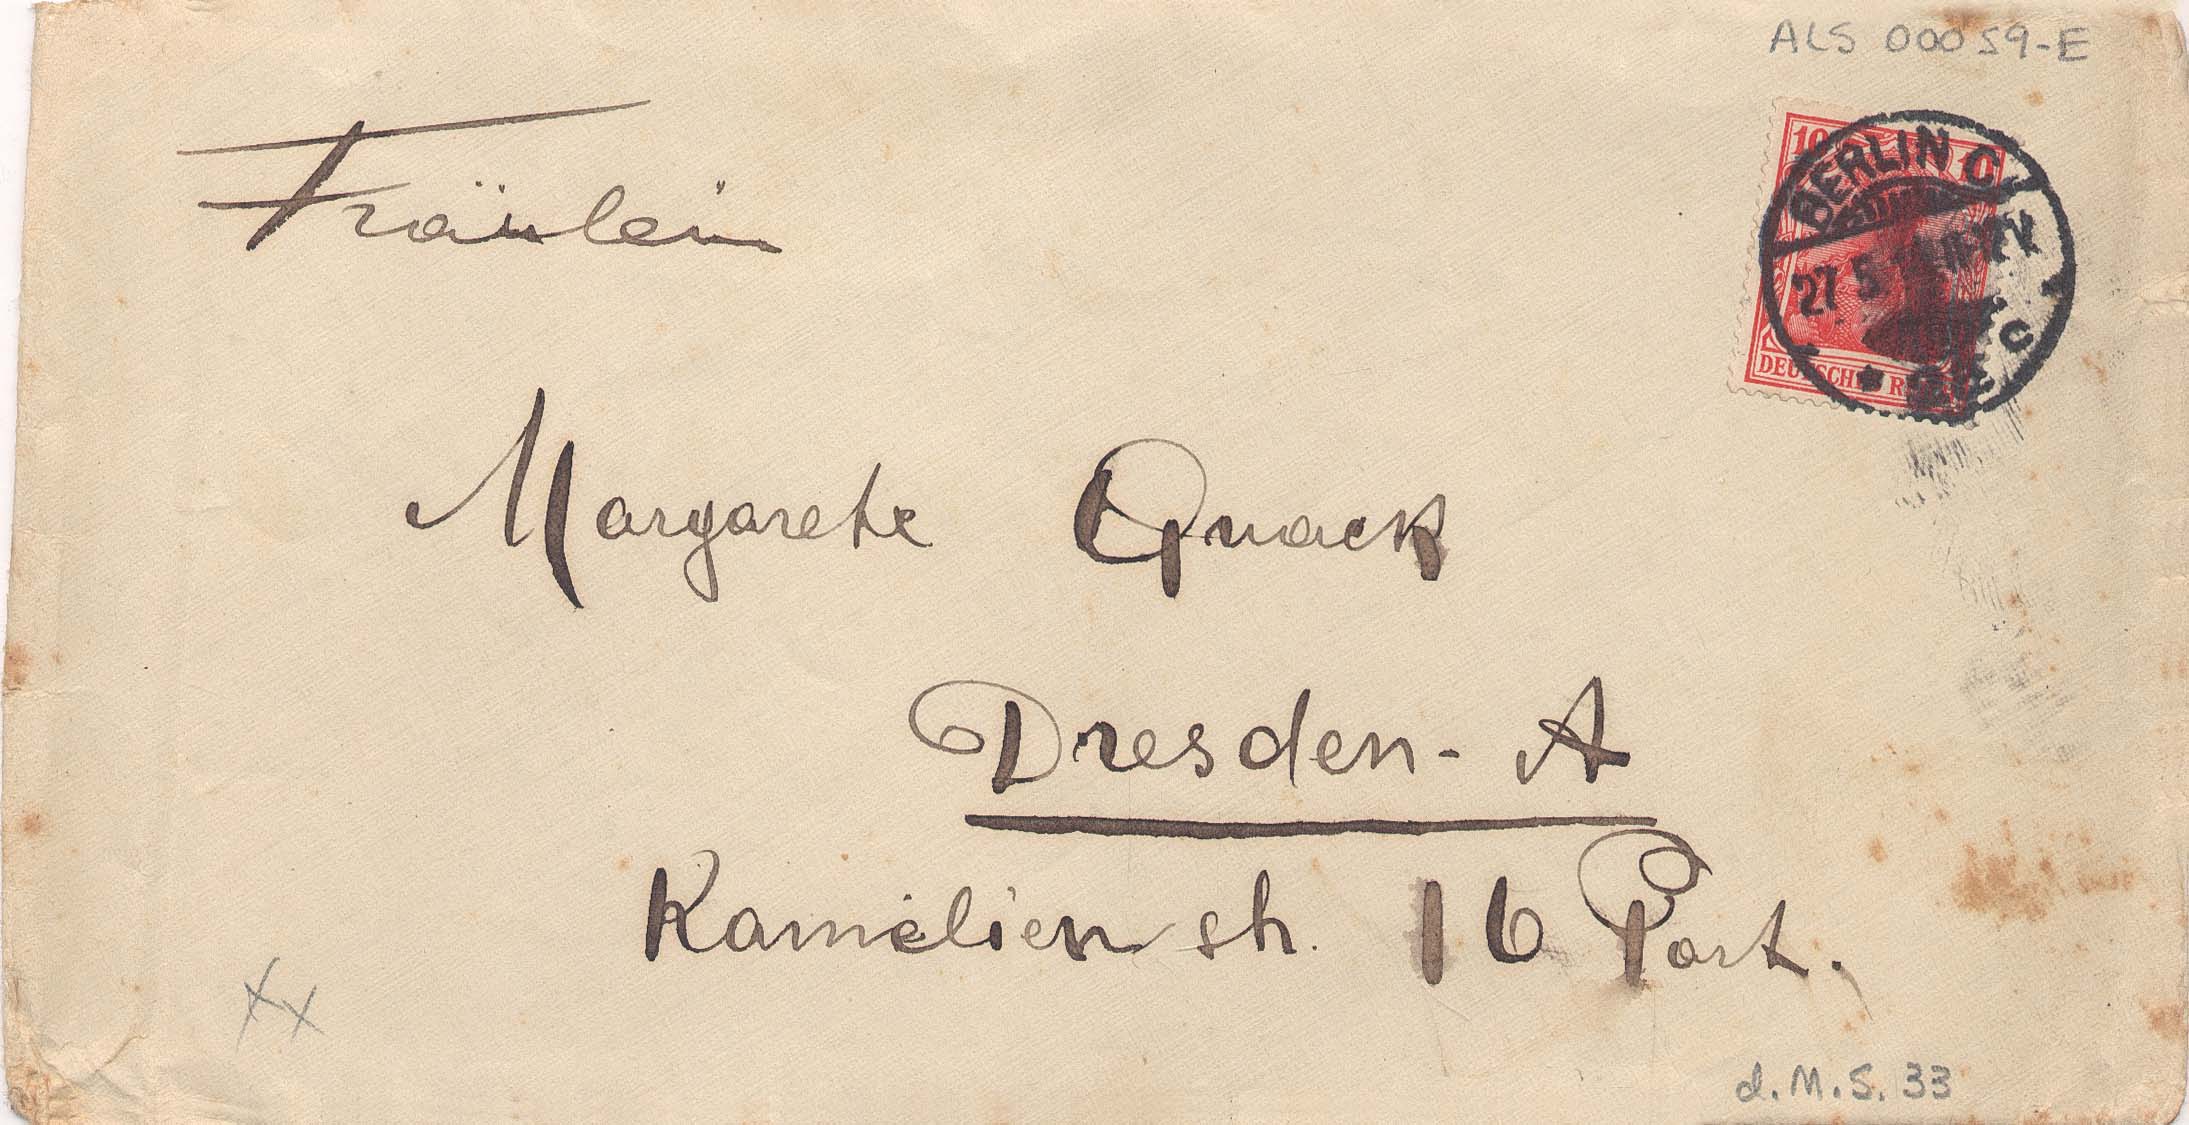 ALS 00059-E
10 10
BERLIN C
27 5
* C
DEUTSCHES REICH
Fräulein
Margarete Quack
Dresden-A
Kamelienstr. 16 Part.
xx
d.M.S. 33